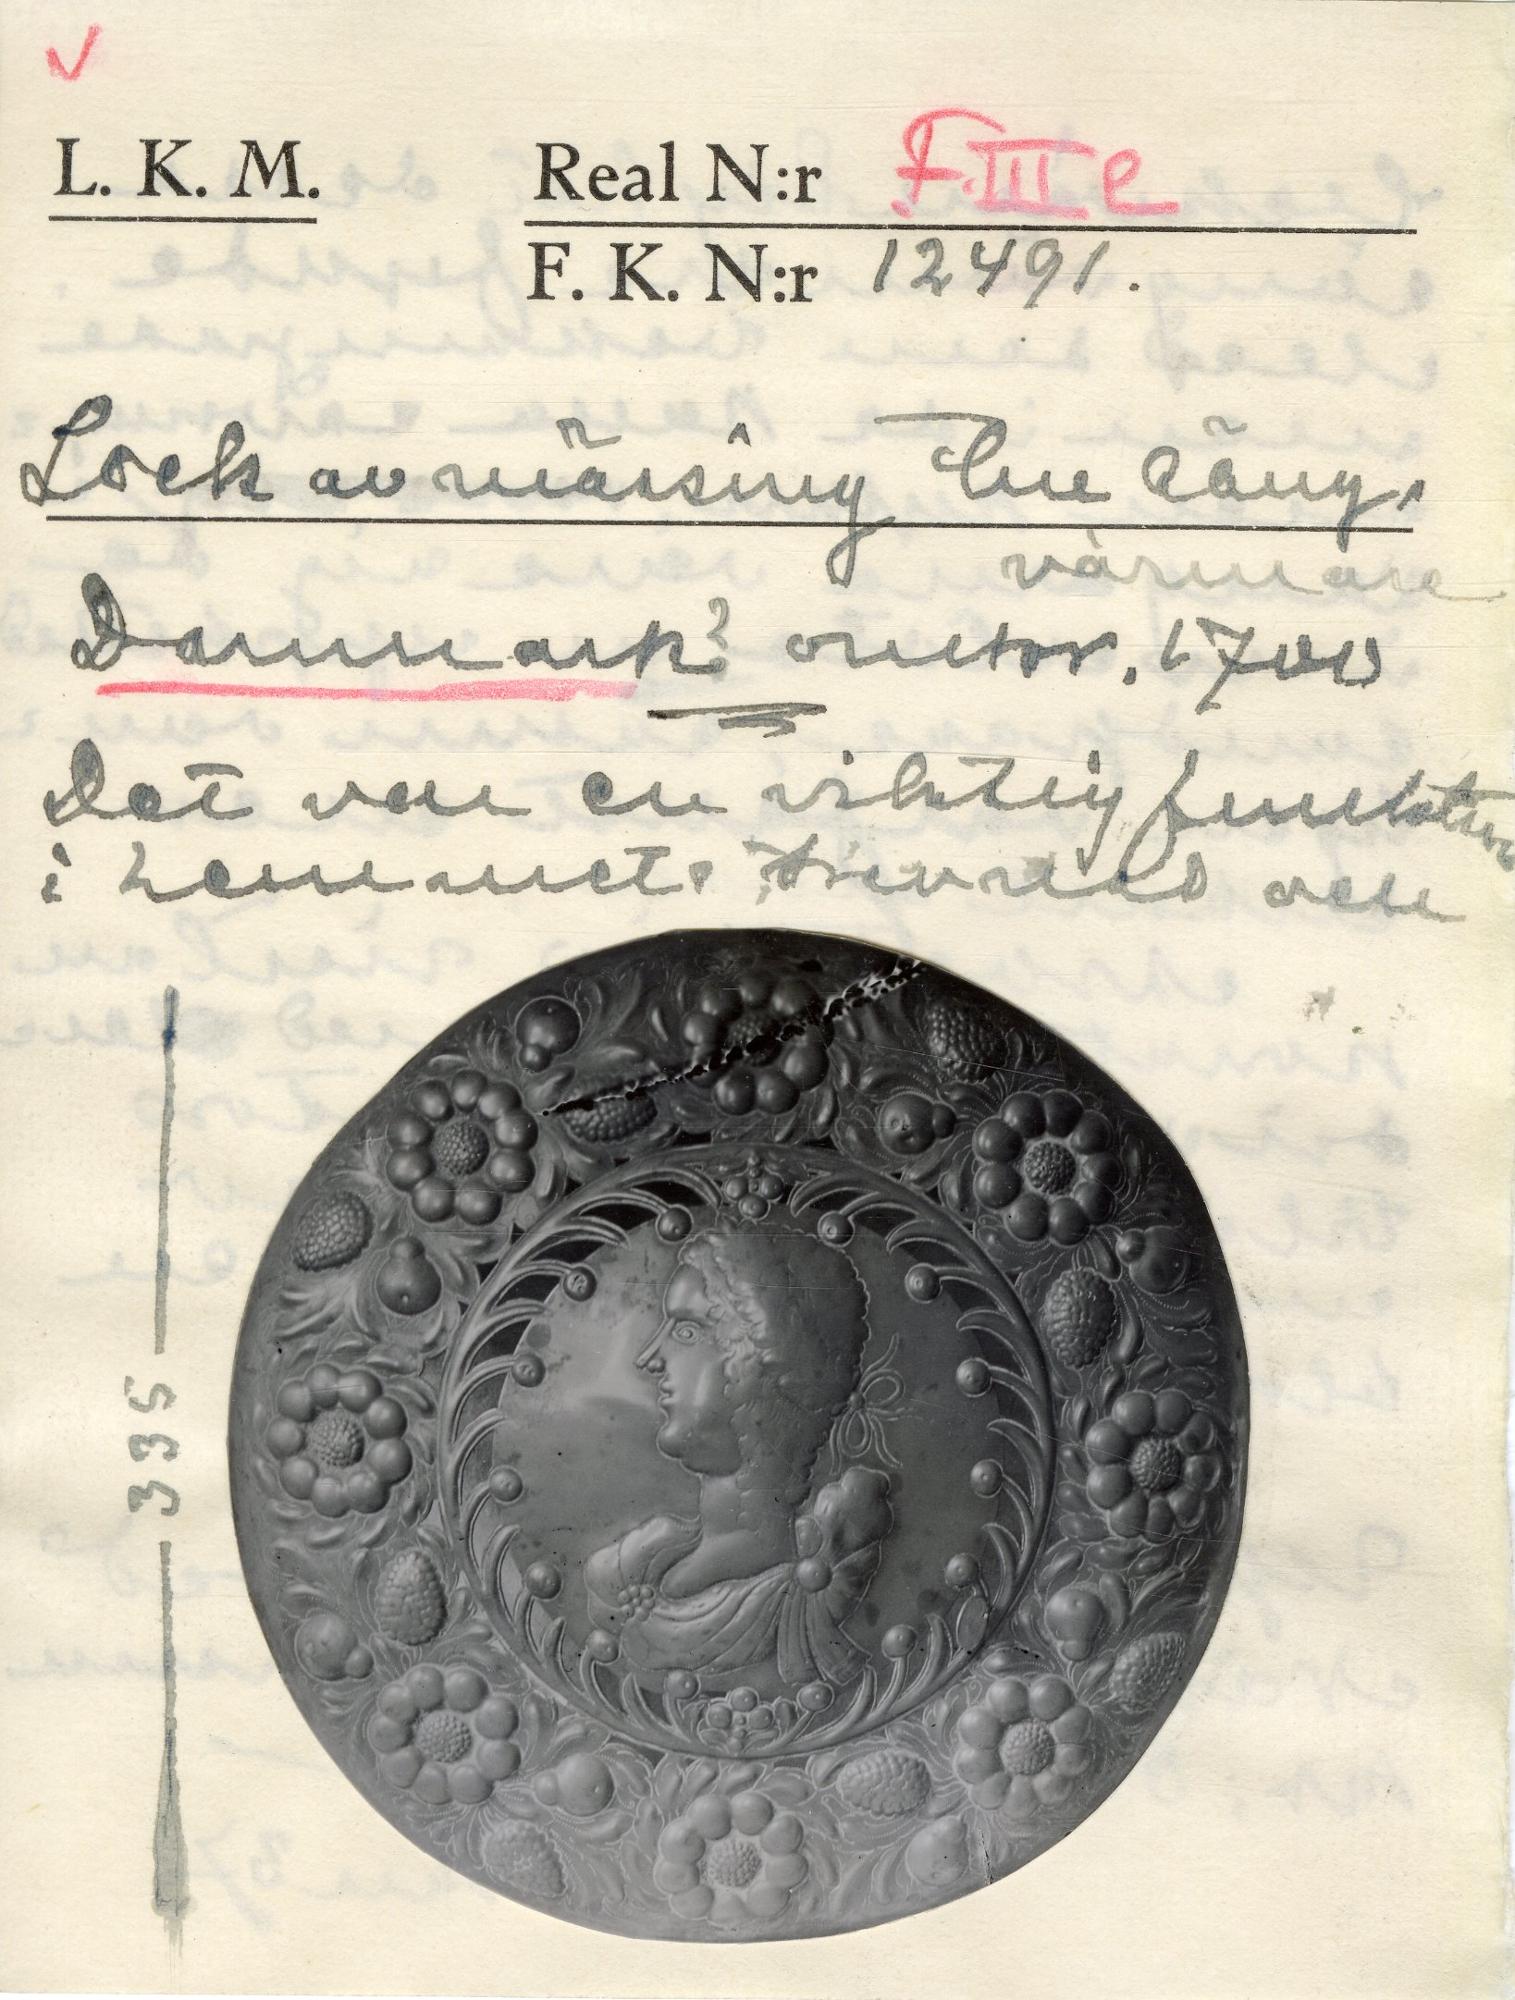 L. K. M.
Real N:r F.III e
F. K. N:r 12491.
Lock av mässing till säng-
värmare
Danmark? omkr. 1700
Det var en viktig funktion
i hemmets och
335